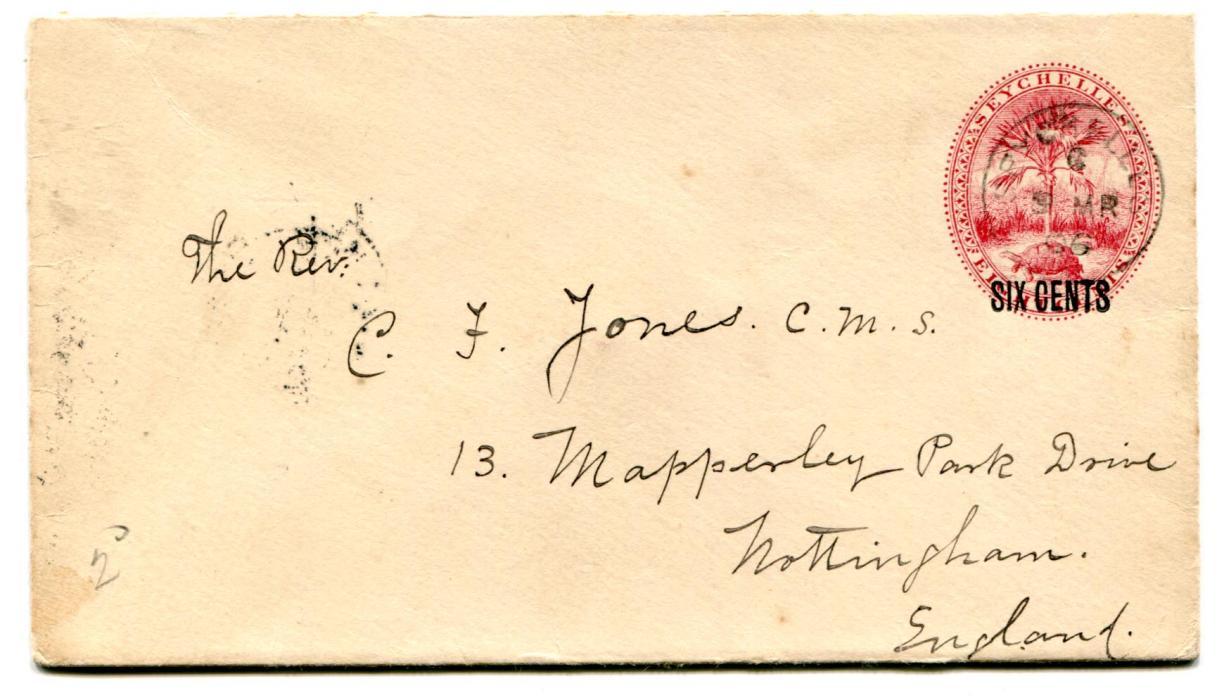 SEYCHELLES
SEYCHELLES
C
MR
SIX CENTS
The Rev.
C. F. Jones. C.M.S.
13. Mapperley Park Drive
Nottingham.
England.
2